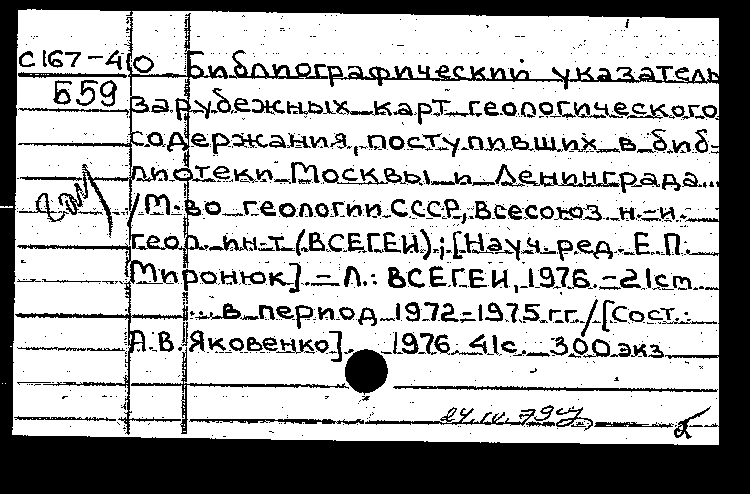 С167-410 Библиографический указатель
Б59 зарубежных карт геологического
содержания, поступивших в биб-
лиотеки Москвы и Ленинграда...
/М-во геологии СССР, Всесоюз. н.-и.
геол. ин-т (ВСЕГЕИ); [Науч. ред. Е.П.
Миронюк]. - Л.: ВСЕГЕИ, 1976. - 21см
... в период 1972-1975 гг. /[Сост.:
А.В. Яковенко]. 1976. 41с. 300 экз.
24.IV.79